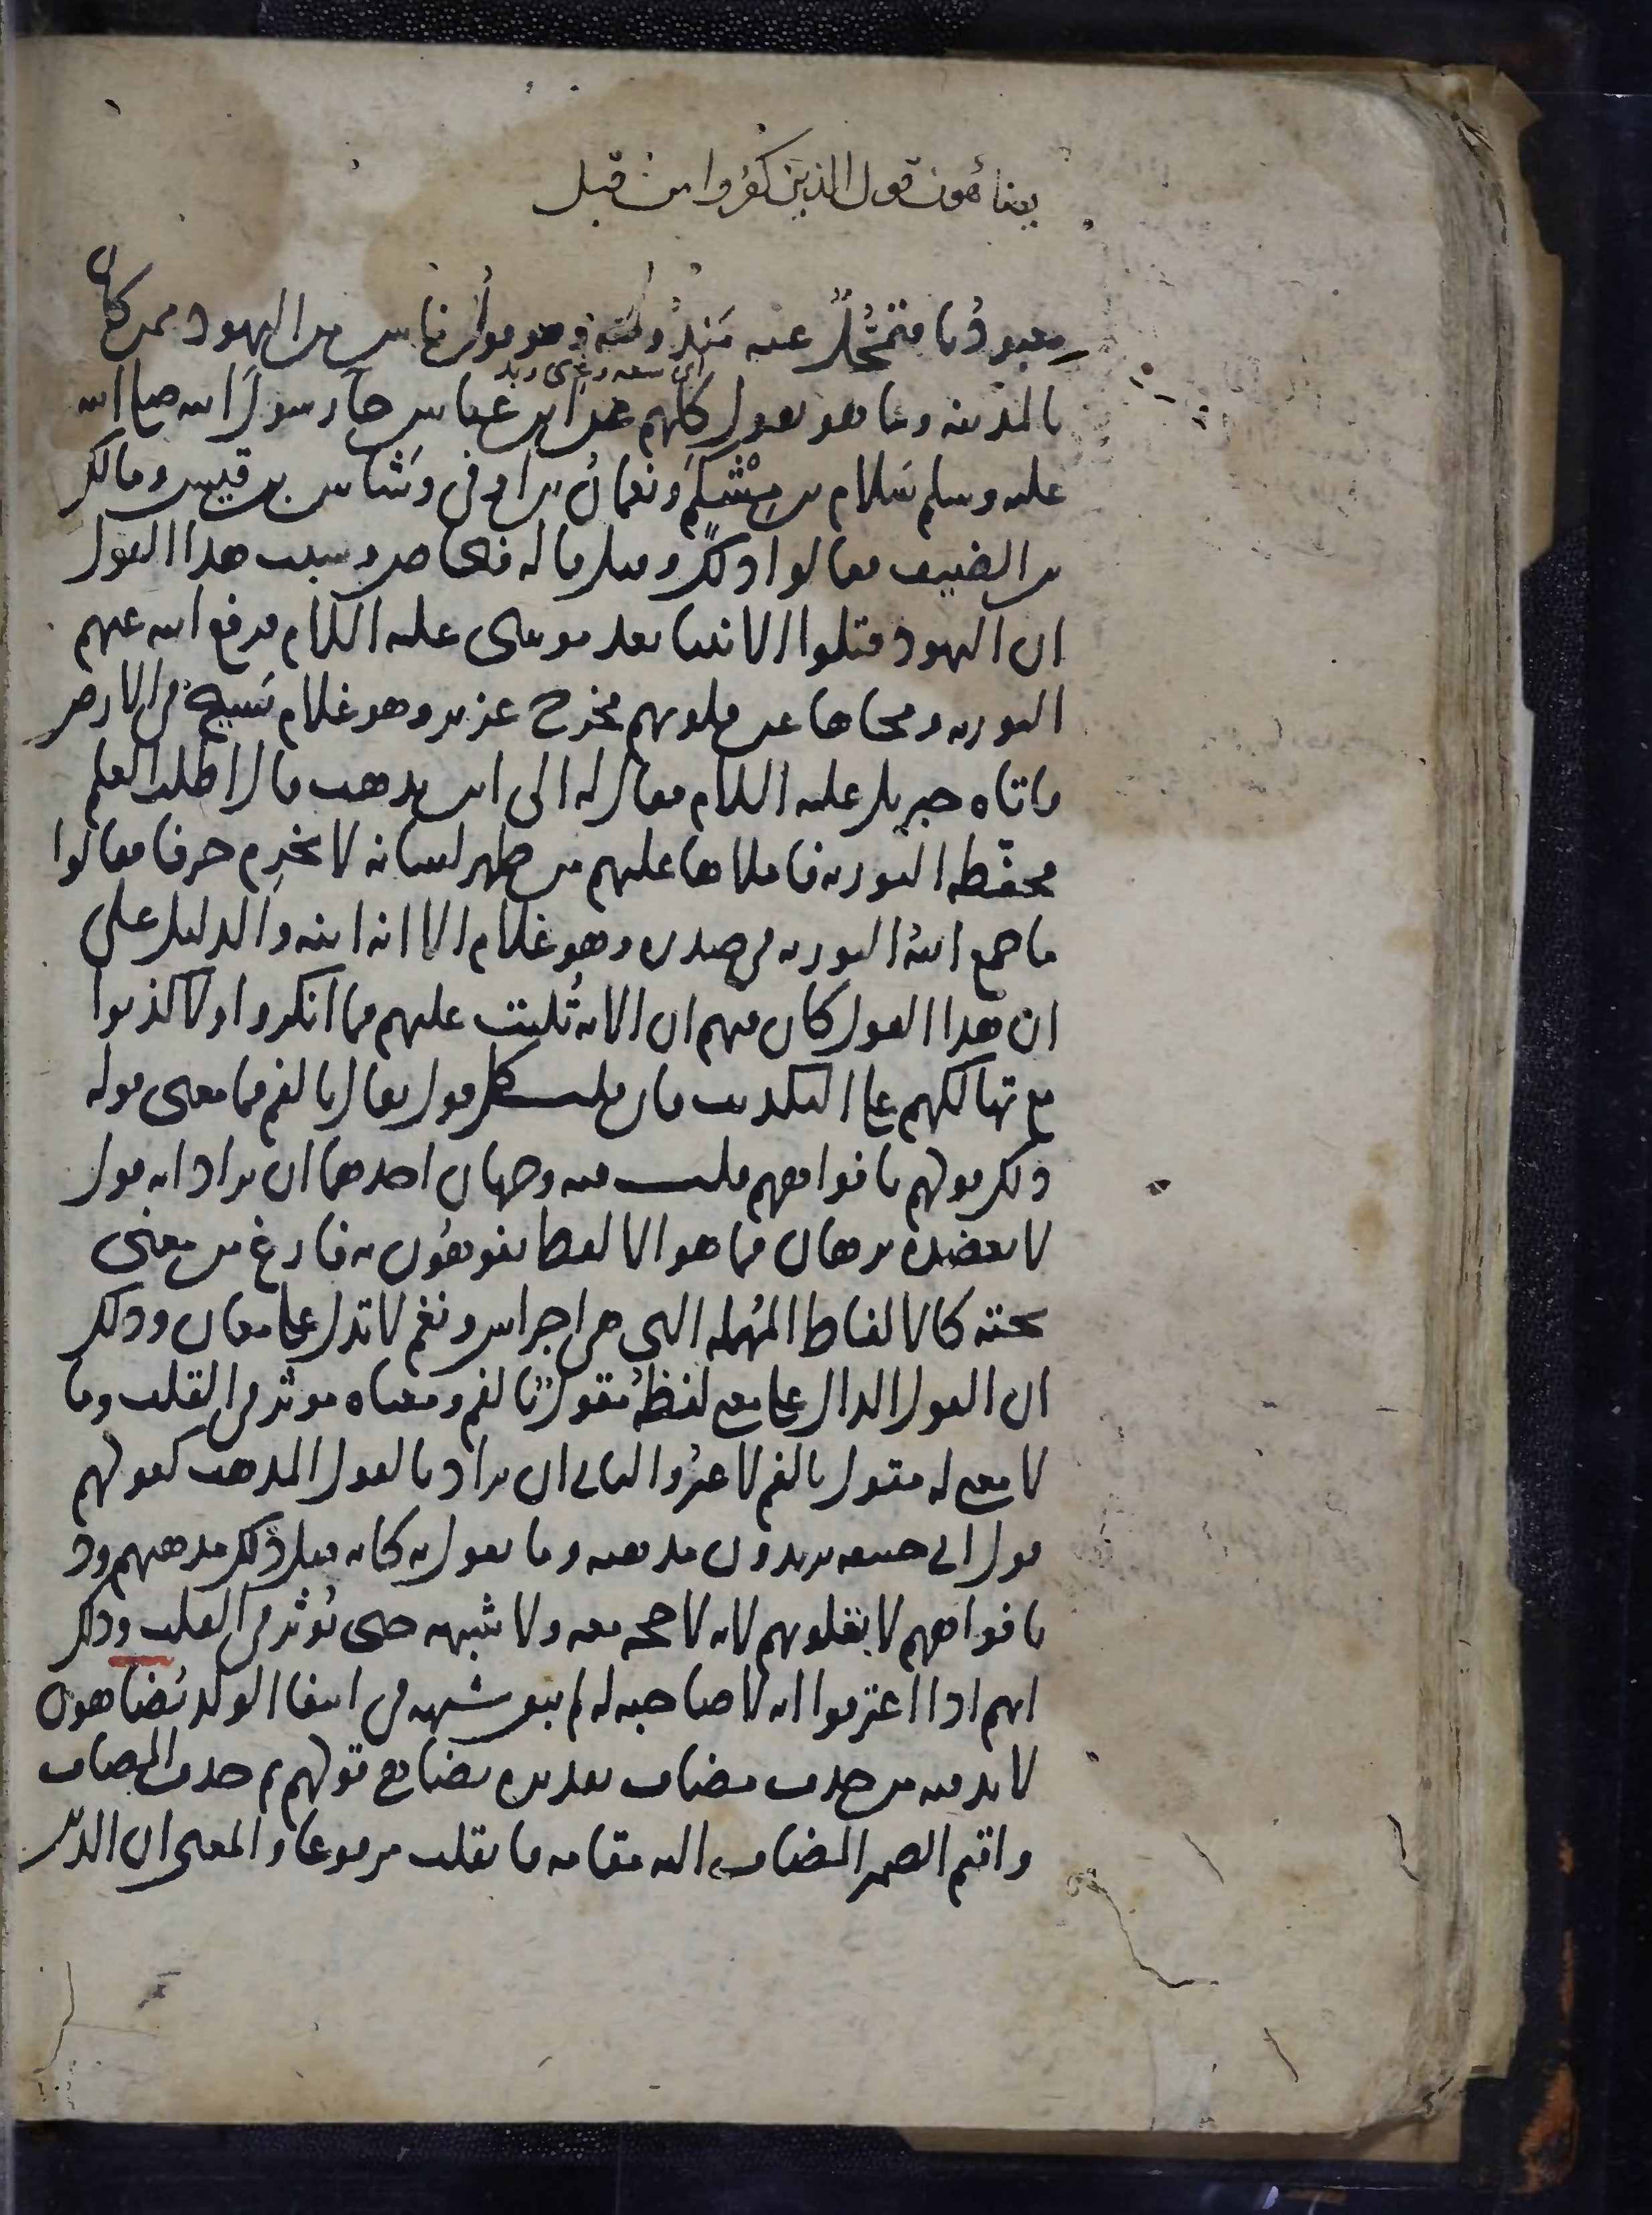 يضاهون قول الذين كفروا من قبل
معبودُنا فتمحُّلٌ عنه مَندُوحَةٌ وهو قول ناس من اليهود ممن كان
اى سعه وغنى وبد
بالمدينه وما هو بقول كلهم عن ابن عباس جآ رسولَ الله صلى الله
عليه وسلم سَلام بن مِشْكَم ونعمانُ بن اوفى وشاس بن قيس ومالك
بن الضيف فقالوا ذلك وقيل قاله فنحاص وسبب هذا القول
ان اليهود قتلوا الانبيا بعد موسى عليه السلام فرفع الله عنهم
التوريه ومحاها عن قلوبهم فخرج عزير وهو غلام يَسيح في الارض
فاتاه جبريل عليه السلام فقال له الى اين تذهب قال اطلب العلم
فحفّظه التوريه فاملاها عليهم عن ظهر لسانه لا يخرِم حرفا فقالوا
ما جمع اللهُ التوريه في صدره وهو غلام الا انه ابنه والدليل على
ان هذا القول كان فيهم ان الايه تُليت عليهم فما انكروا ولا كذبوا
مع تهالكهم على التكذيب فان قلت كل قول يقال بالفم فما معنى قوله
ذلك قولهم بافواههم قلت فيه وجهان احدهما ان يراد انه قول
لا يعضده برهان فما هو الا لفظ يفوهُون به فارغ من معنى
تحته كالالفاظ المُهمله التي هي اجراس ونغم لا تدل على معان وذلك
ان القول الدال على معنى لفظُه مقولٌ بالفم ومعناه موثر في القلب وما
لا معنى له مقول بالفم لا غيرُ والثاني ان يراد بالقول المذهب كقولهم
قول ابي حنيفه يريدون مذهبه وما يقول به كانه قيل ذلك مذهبهم ود
بافواههم لا بقلوبهم لانه لا حجه معه ولا شبهه حتى تُوثر في القلب وذلك
انهم اذا اعترفوا انه لا صاحبه له لم تبق شبهه في انتفا الولد يُضاهون
لا بد فيه من حذف مضاف تقديره يضاهي قولهم ثم حذف المضاف
واقيم الضمير المضاف اليه مقامه فانقلب مرفوعا والمعنى ان الذين